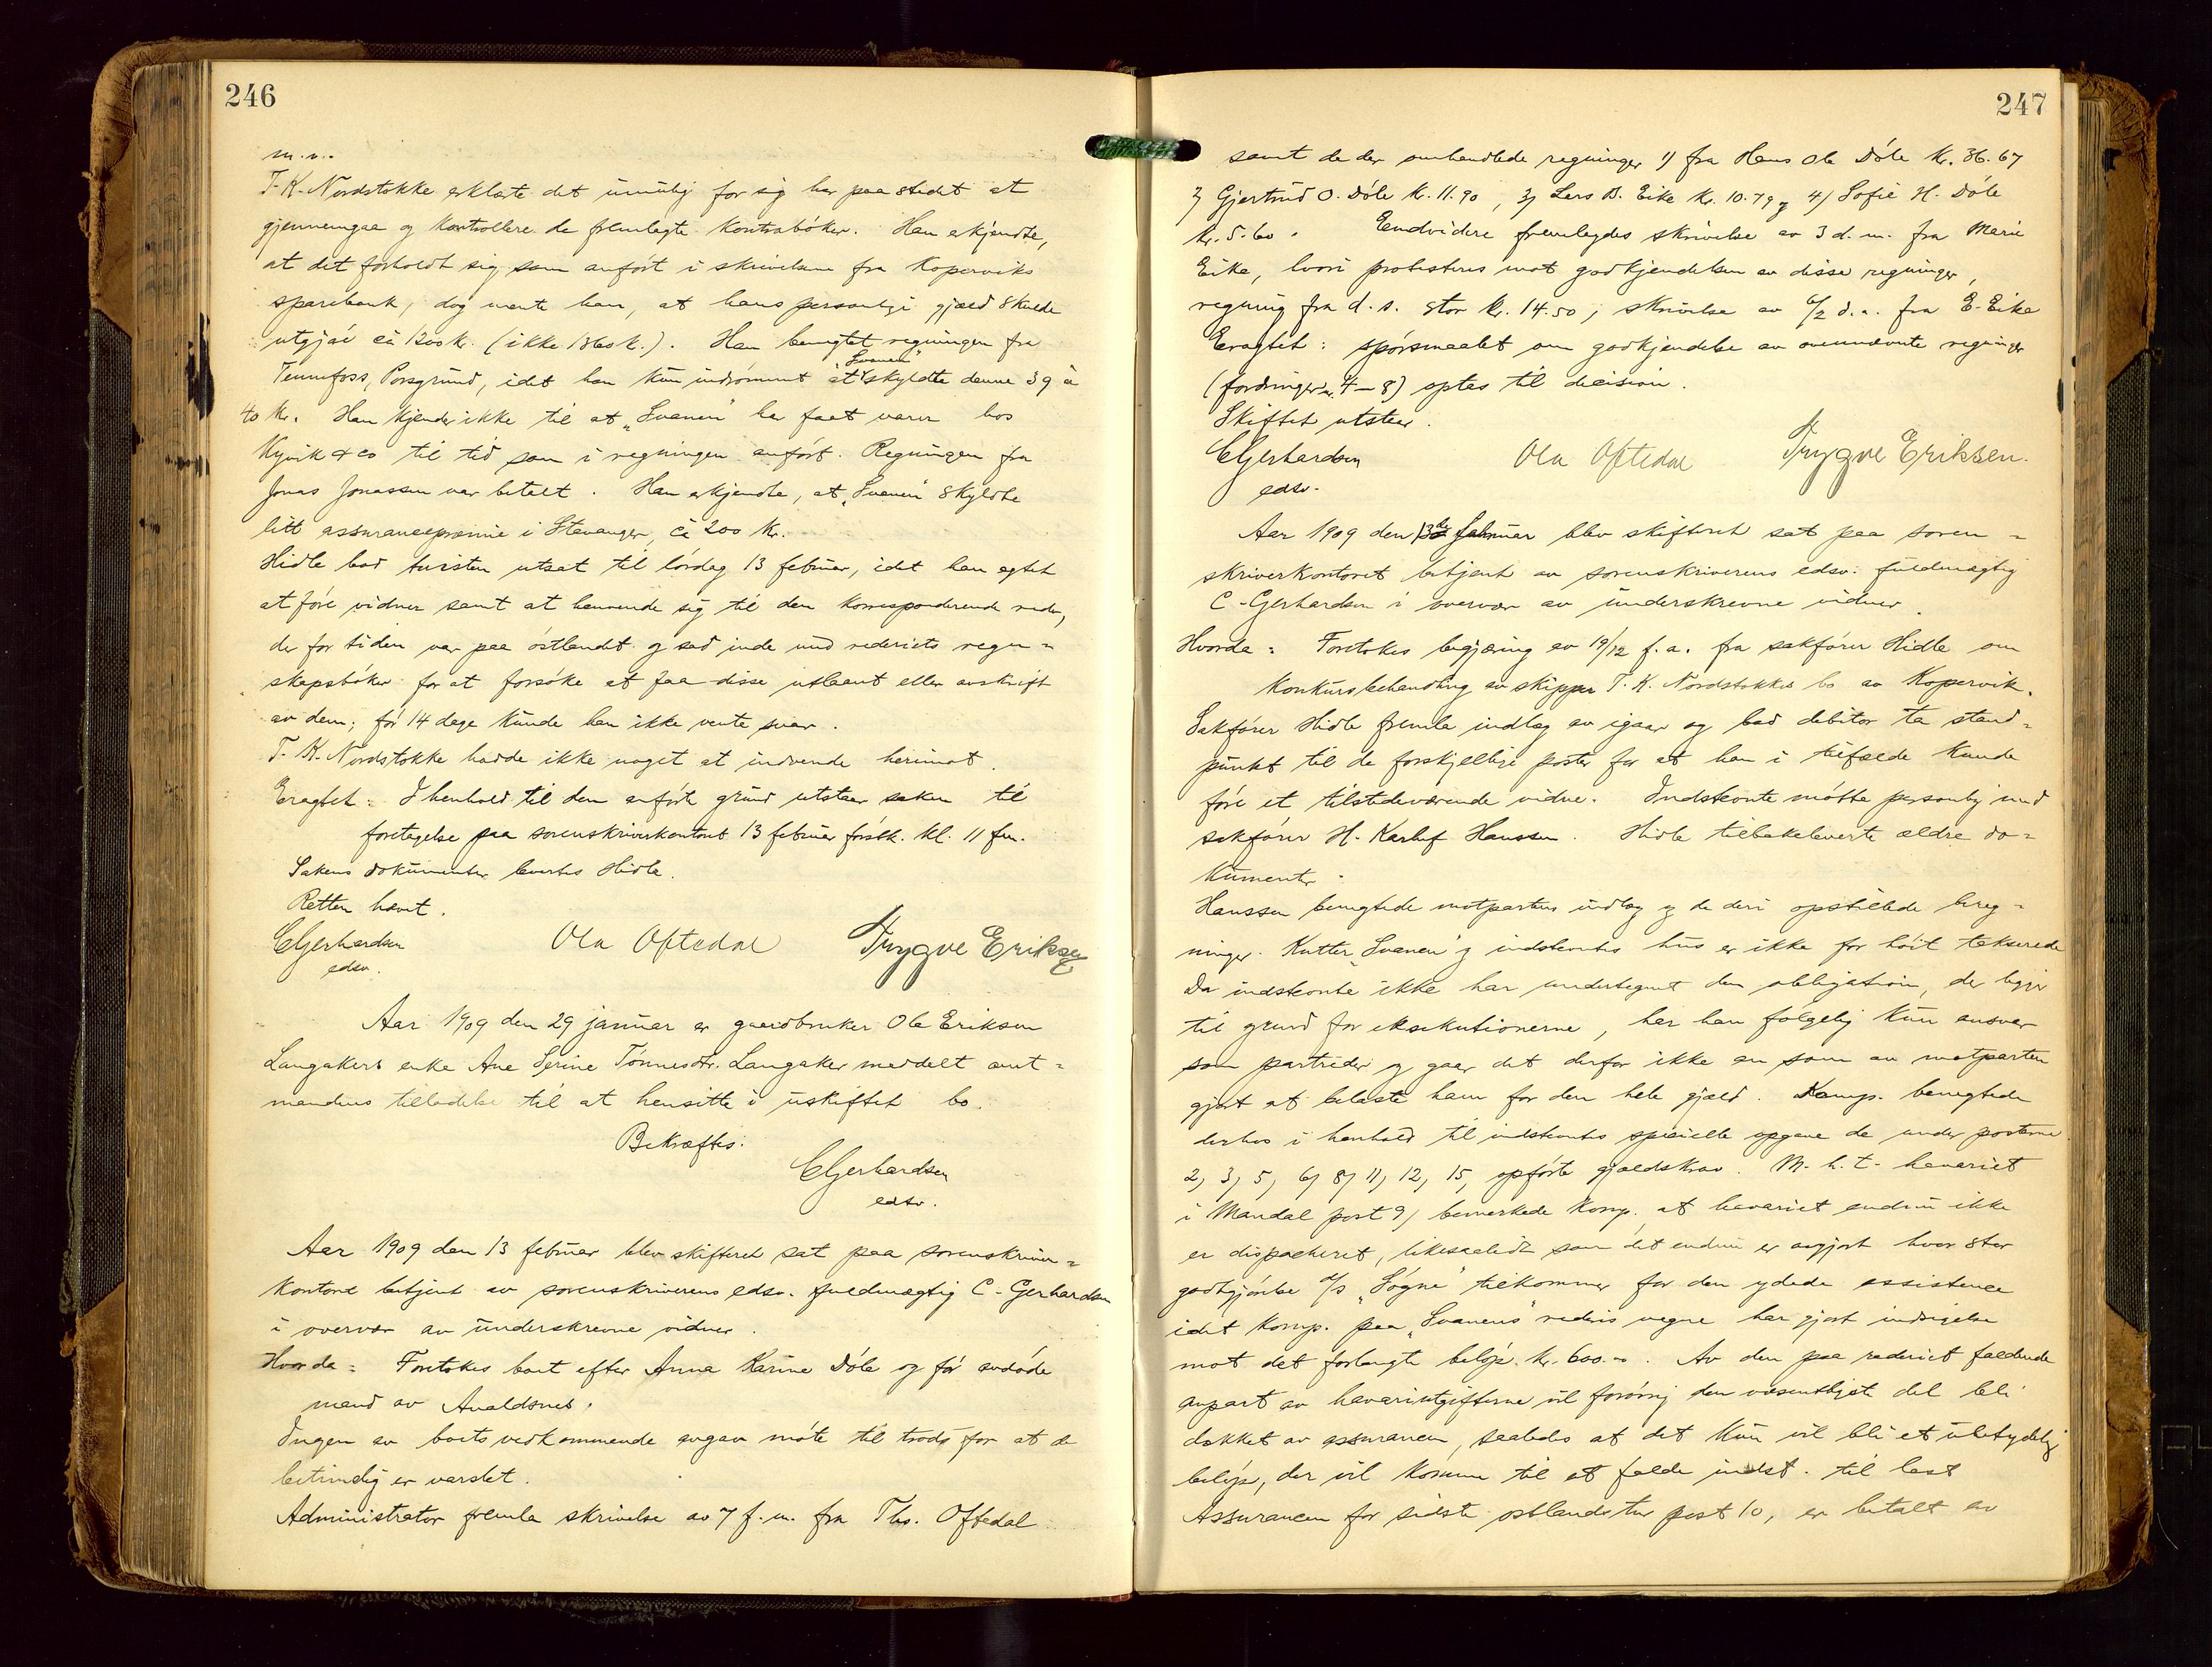 246
m.v.
T. K. Nordstokke erklærte det umulig for sig her paa stedet at
gjennemgaa og kontrollere de fremlagte kontrabøker. Han erkjendte,
at det forholdt sig som anført i skrivelsen fra Koperviks
sparebank, dog mente han, at hans personlige gjæld skulde
utgjøre ca 1200 kr. (ikke 1360 k.). Han benegtet regningen fra
Tennefoss, Porsgrund, idet han kun indrømmet at "Svanen" skyldte denne 39 à
40 kr. Han kjender ikke til at "Svanen" har faat varer hos
Kyvik & co til tid som i regningen anført. Regningen fra
Jonas Jonassen var betalt. Han erkjendte, at "Svanen" skyldte
litt assurancepræmie i Stavanger, ca 200 kr.
Hidle bad tvisten utsat til lørdag 13 februar, idet han agtet
at føre vidner samt at henvende sig til den korresponderende reder,
der for tiden var paa østlandet og sad inde med rederiets regn-
skapsbøker for at forsøke at faa disse utlaant eller avskrift
av dem; før 14 dage kunde han ikke vente svar.
T. K. Nordstokke hadde ikke noget at indvende herimot.
Eragtet: I henhold til den anførte grund utstaar saken til
foretagelse paa sorenskriverkontoret 13 februar førstk. kl. 11 fm.
Sakens dokumenter levertes Hidle.
Retten hævet.
CGerhardsen Ola Oftedal Trygve Eriksen
edsv.
Aar 1909 den 29 januar er gaardbruker Ole Eriksen
Langakers enke Ane Serine Tønnesdtr. Langaker meddelt amt-
mandens tilladelse til at hensitte i uskiftet bo.
Bekræftes:
CGerhardsen
edsv.
Aar 1909 den 13 februar blev skifteret sat paa sorenskriver-
kontoret betjent av sorenskriverens edsv. fuldmægtig C. Gerhardsen
i overvær av underskrevne vidner.
Hvorda: Foretokes boet efter Anna Karine Døle og før avdøde
mand av Avaldsnes.
Ingen av boets vedkommende avgav møte til trods for at de
betimelig er varslet.
Administrator fremla skrivelse av 7 f.m. fra Ths. Oftedal
247
samt de der omhandlede regninger 1) fra Hans Ole Døle kr. 36.67
2) Gjertrud O. Døle kr. 11.90, 3) Lars B. Eike kr. 10.79 og 4) Sofie H. Døle
kr. 5.60. Eendvidere fremlagdes skrivelse av 3 d.m. fra Marie
Eike, hvori protesteres mot godkjendelsen av disse regninger,
regning fra d.s. stor kr. 14.50, skrivelse av 6/2 d.a. fra E. Eike
Eragtet: spørsmaalet om godkjendelse av ovennævnte regninger
(fordringer nr. 4-8) optas til decision.
Skiftet utstaar.
CGerhardsen Ola Oftedal Trygve Eriksen.
edsv.
Aar 1909 den 13de februar blev skifteret sat paa soren-
skriverkontoret betjent av sorenskriverens edsv. fuldmægtig
C. Gerhardsen i overvær av underskrevne vidner.
Hvorda: Foretokes begjæring av 19/12 f.a. fra sakfører Hidle om
konkursbehandling av skipper T. K. Nordstokkes bo av Kopervik.
Sakfører Hidle fremla indlæg av igaar og bad debitor ta stand-
punkt til de forskjellige poster for at han i tilfælde kunde
føre et tilstedeværende vidne. Indstevnte møtte personlig med
sakfører H. Karluf Hanssen. Hidle tilbakeleverte ældre do-
kumenter.
Hanssen benegtede motpartens indlæg og de deri opstillede bereg-
ninger. Kutter "Svanen" og indstevntes hus er ikke for høit takserede
Da indstevnte ikke har undertegnet den obligation, der ligger
til grund for eksekutionerne, har han følgelig kun ansvar
som partreder og gaar det derfor ikke an som av motparten
gjort at belaste ham for den hele gjæld. Komp. benegtede
derhos i henhold til indstevntes specielle opgave de under posterne
2, 3, 5, 6, 8, 11, 12, 15, opførte gjældskrav. M.h.t. havariet
i Mandal post 9, bemerkede komp. at havariet endnu ikke
er dispacheret, likesaalidt som det endnu er avgjort hvor stor
godtgjørelse d/s "Søgne" tilkommer for den ydede assistence
idet komp. paa "Svanens" rederis vegne har gjort indsigelse
mot det forlangte beløp kr. 600.-. Av den paa rederiet faldende
anpart av havariutgifterne vil forøvrig den væsentligste del bli
dækket av assurancen, saaledes at det kun vil bli et ubetydelig
beløp, der vil komme til at falde indst. til last
Assurancen for sidste østlandstur post 10, er betalt av